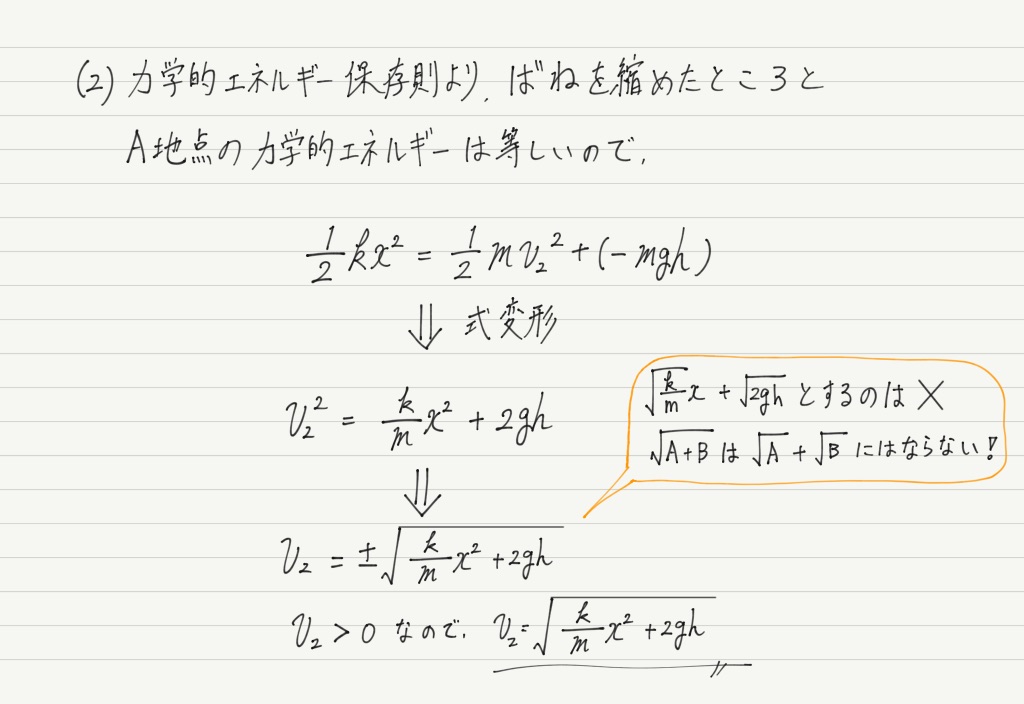 (2) 力学的エネルギー保存則より、ばねを縮めたところと
A地点の力学的エネルギーは等しいので、
1/2 kx² = 1/2 mv₂² + (-mgh)
⇓ 式変形
v₂² = k/m x² + 2gh
⇓
√(k/m) x + √(2gh) とするのは ×
√(A+B) は √A + √B にはならない!
v₂ = ±√(k/m x² + 2gh)
v₂ > 0 なので、 v₂ = √(k/m x² + 2gh)